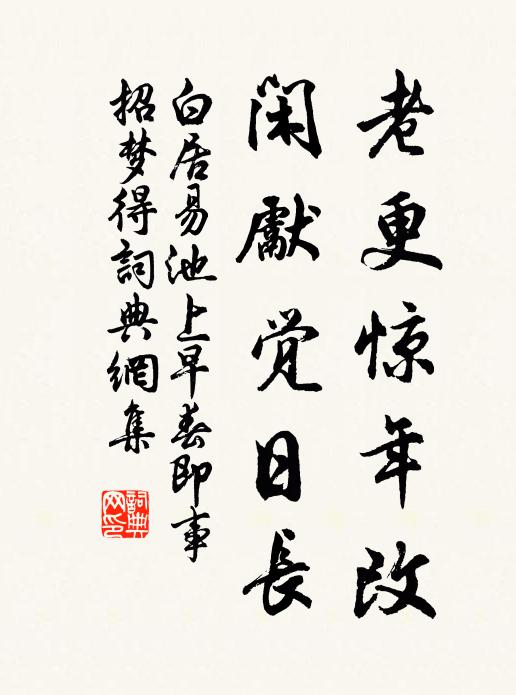 老更惊年改
闲獻觉日長
白居易池上早春即事
招梦得詞典網集
詞典网印